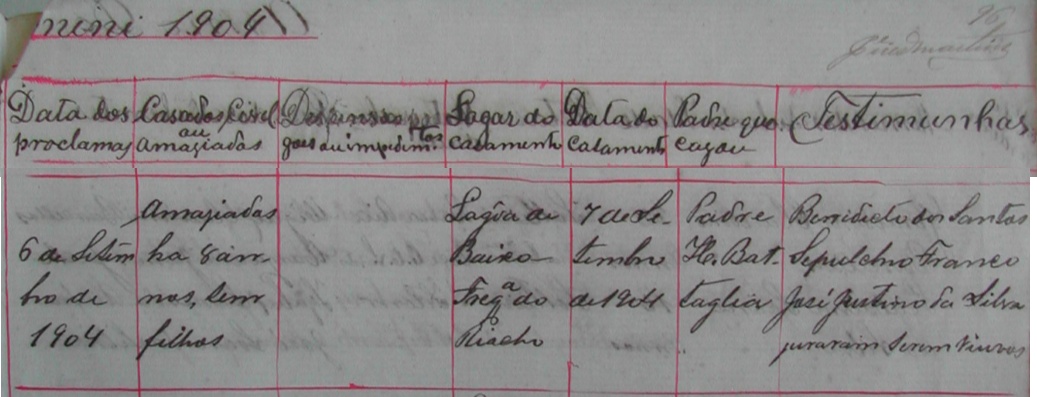 1904
96
Data dos Casados Civil Lugar do Data do Padre que Testimunhas
proclamas ou amaziados gaes ou impedim.tos casamento casamento casou
Amaziados Lagôa de 7 de Se- Padre Benidicto dos Santos
6 de Setem ha 8 an Baixo tembro H. Bat- Sepulchro Franco
bro de nos, tem Freg.a do de 1904 taglia José Justino da Silva
1904 filhos Riacho juraram serem viuvos